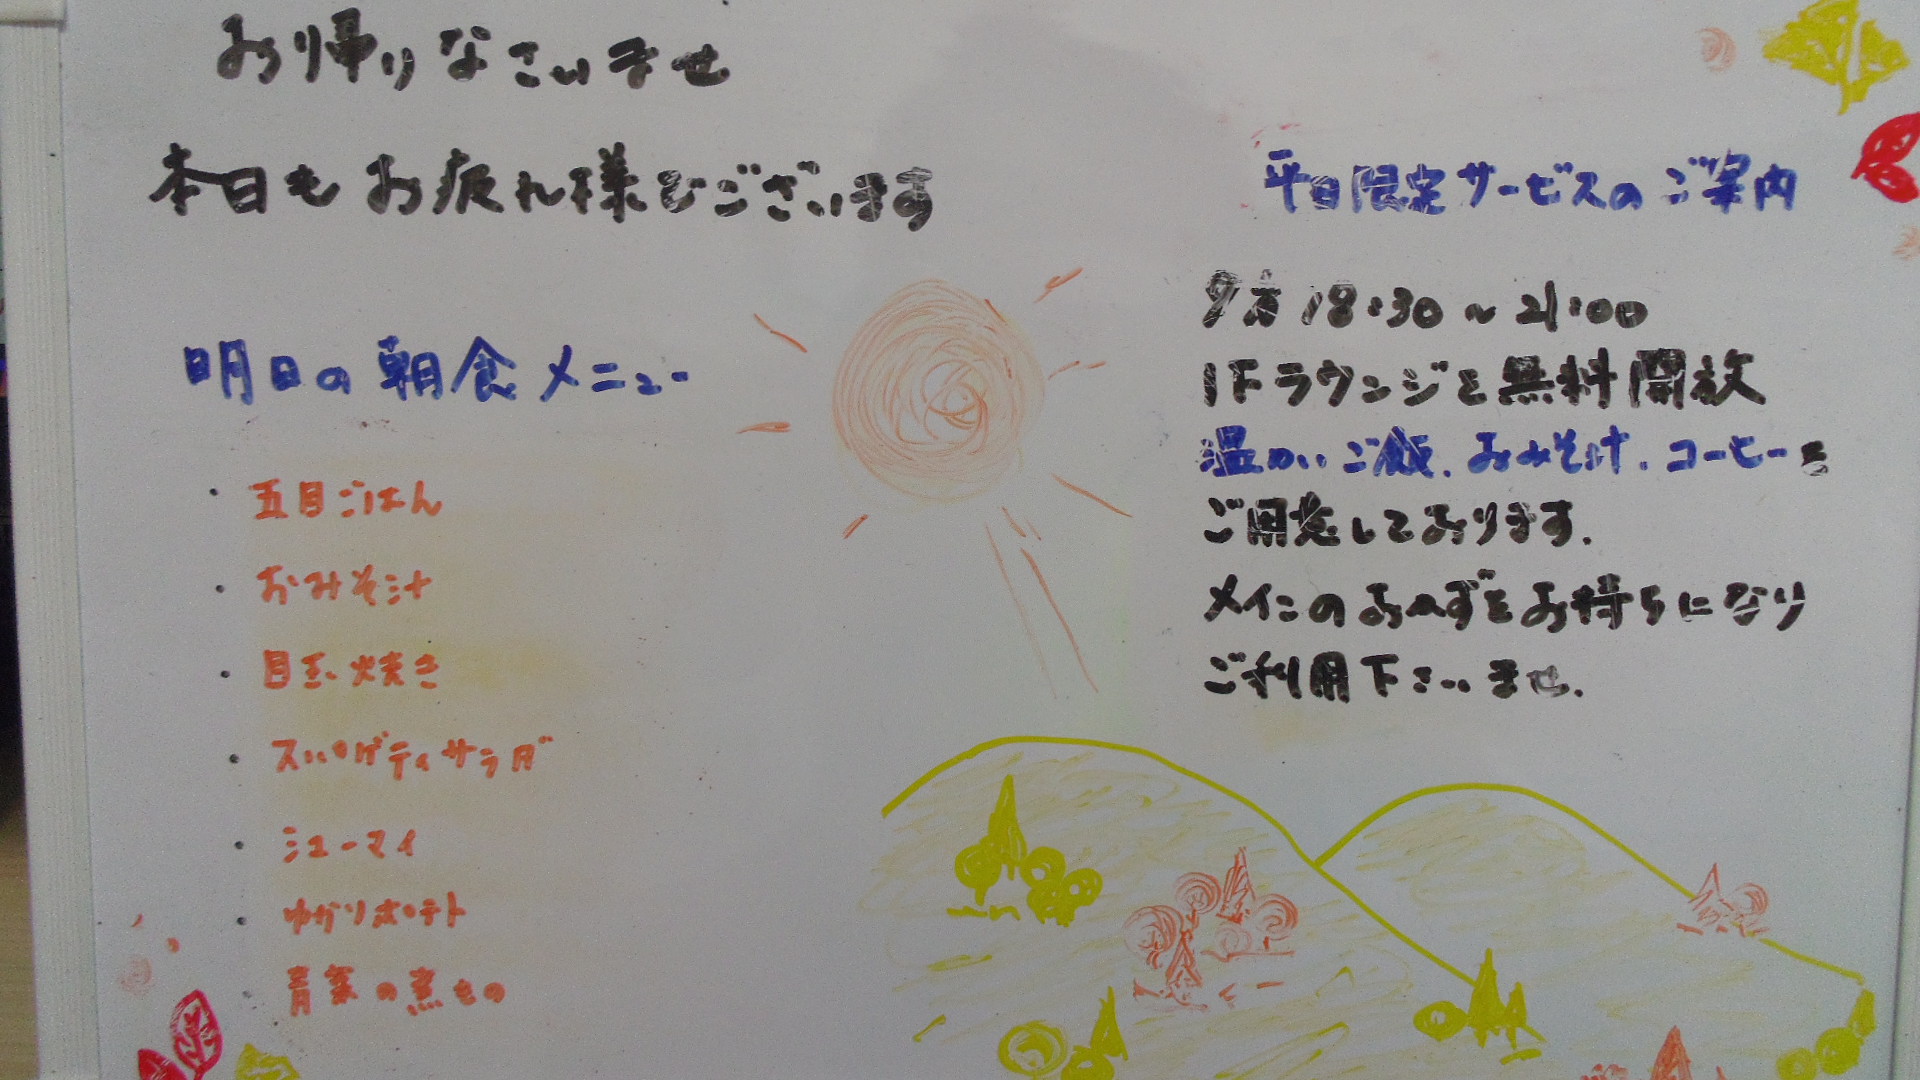 お帰りなさいませ
本日もお疲れ様でございます
明日の朝食メニュー
・五目ごはん
・おみそ汁
・目玉焼き
・スパゲティサラダ
・シューマイ
・ゆかりポテト
・青菜の煮もの
平日限定サービスのご案内
夕方 18:30～21:00
1Fラウンジを無料開放
温かいご飯、おみそ汁、コーヒーを
ご用意しております。
メインのおかずをお持ちになり
ご利用下さいませ。